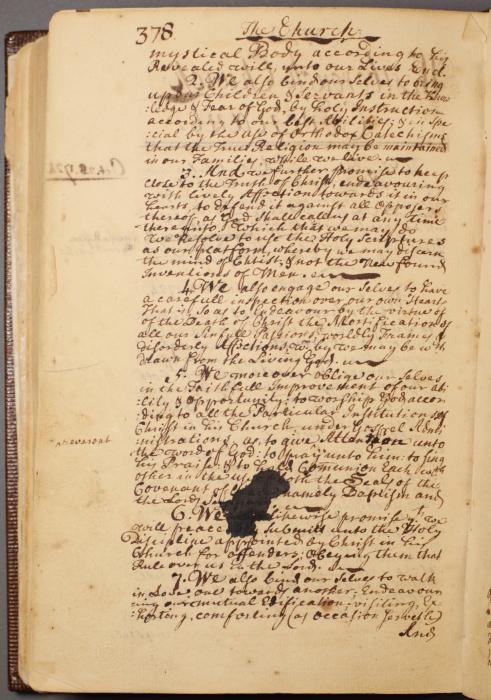 378 The Church
mystical Body according to his
Revealed will, unto our Lives End.
2. We also bind our Selves to bring
up our Children & Servants in the Know
:ledge & Fear of God, by holy Instruction
according to our best Abilities; & in Spe
:cial by the use of Orthodox Catechisms
that the True Religion may be maintained
in our Families, while we live.
3. And we further promise to keep
close to the Truth of Christ, endeavouring
with lively Affection towards it in our
hearts, to defend it against all Opposers
thereof, as God shall call us at any time
thereunto; which that we may do
We Resolve to use the Holy Scriptures
as our platform, whereby we may discern
the mind of Christ; & not the New found
Inventions of Men.
4. We also engage our Selves to have
a carefull inspection over our own Hearts
That is So as to Endeavour by the virtue of
of the Death of Christ the Mortification of
all our Sinfull Passions, worldly Frames &
disorderly Affections, whereby we may be with
drawn from the Living God.
5. We moreover oblige our Selves
in the Faithfull Improvement of our Abi
:lity & opportunity, to worship God accor
:ding to all the Particular Institutions of
Christ in his Church, under Gospel Admi
:nistrations, as to give Attention unto
reverent
the word of God: to pray unto him: to sing
his Praise, & to hold Comunion Each with
other in the the Seals of the
Covenant namely Baptism and
the Lords
6. We likewise promise yt we
will peace Submitt unto the Holy
Discipline appointed by Christ in his
Church for offenders; Obeying them that
Rule over us in the Lord.
7. We also bind our Selves to walk
in Love one towards another; Endeavour
:ing our mutual Edification: visiting, Ex
:horting, comforting (as occasion serveth)
And